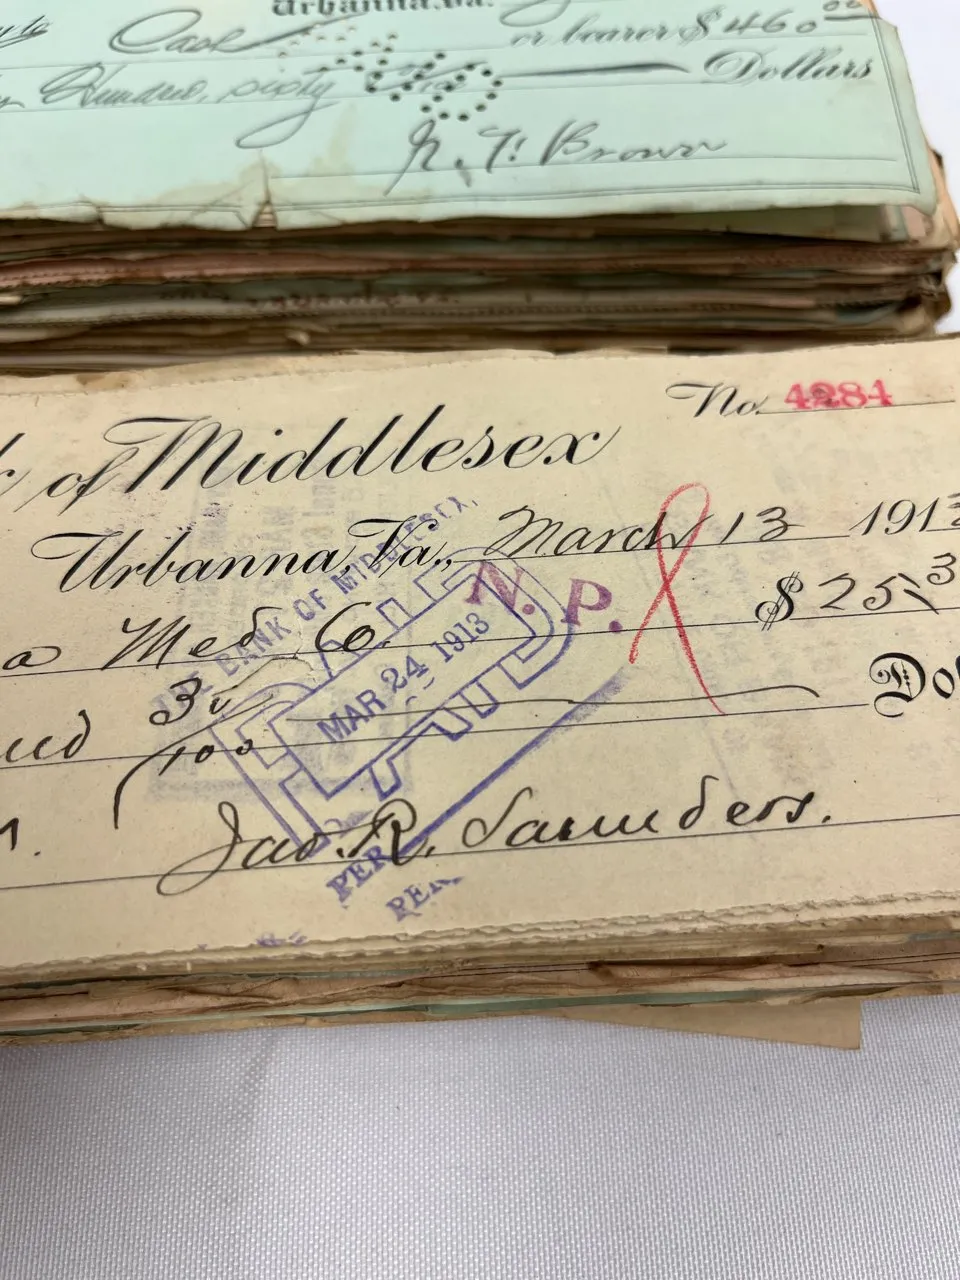 Urbanna, Va.
to Cash or bearer $ 460 00
Hundred, sixty Dollars
N. T. Brown
No. 4284
of Middlesex
Urbanna, Va., March 13 1913
THE BANK OF MIDDLESEX,
N. P.
a Med. Co. $ 25
PAID
MAR 24 1913
3 /100 Dol
Jas. R. Saunders.
PER
PER